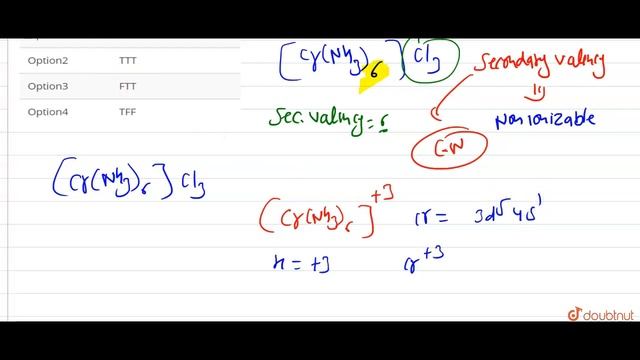 Option2 TTT
Option3 FTT
Option4 TFF
[Cr(NH3)6] Cl3
Secondary valency
Sec. valency = 6
Non ionizable
C.N
[Cr(NH3)6] Cl3
[Cr(NH3)6]+3
Cr = 3d5 4s1
x = +3
Cr+3
doubtnut